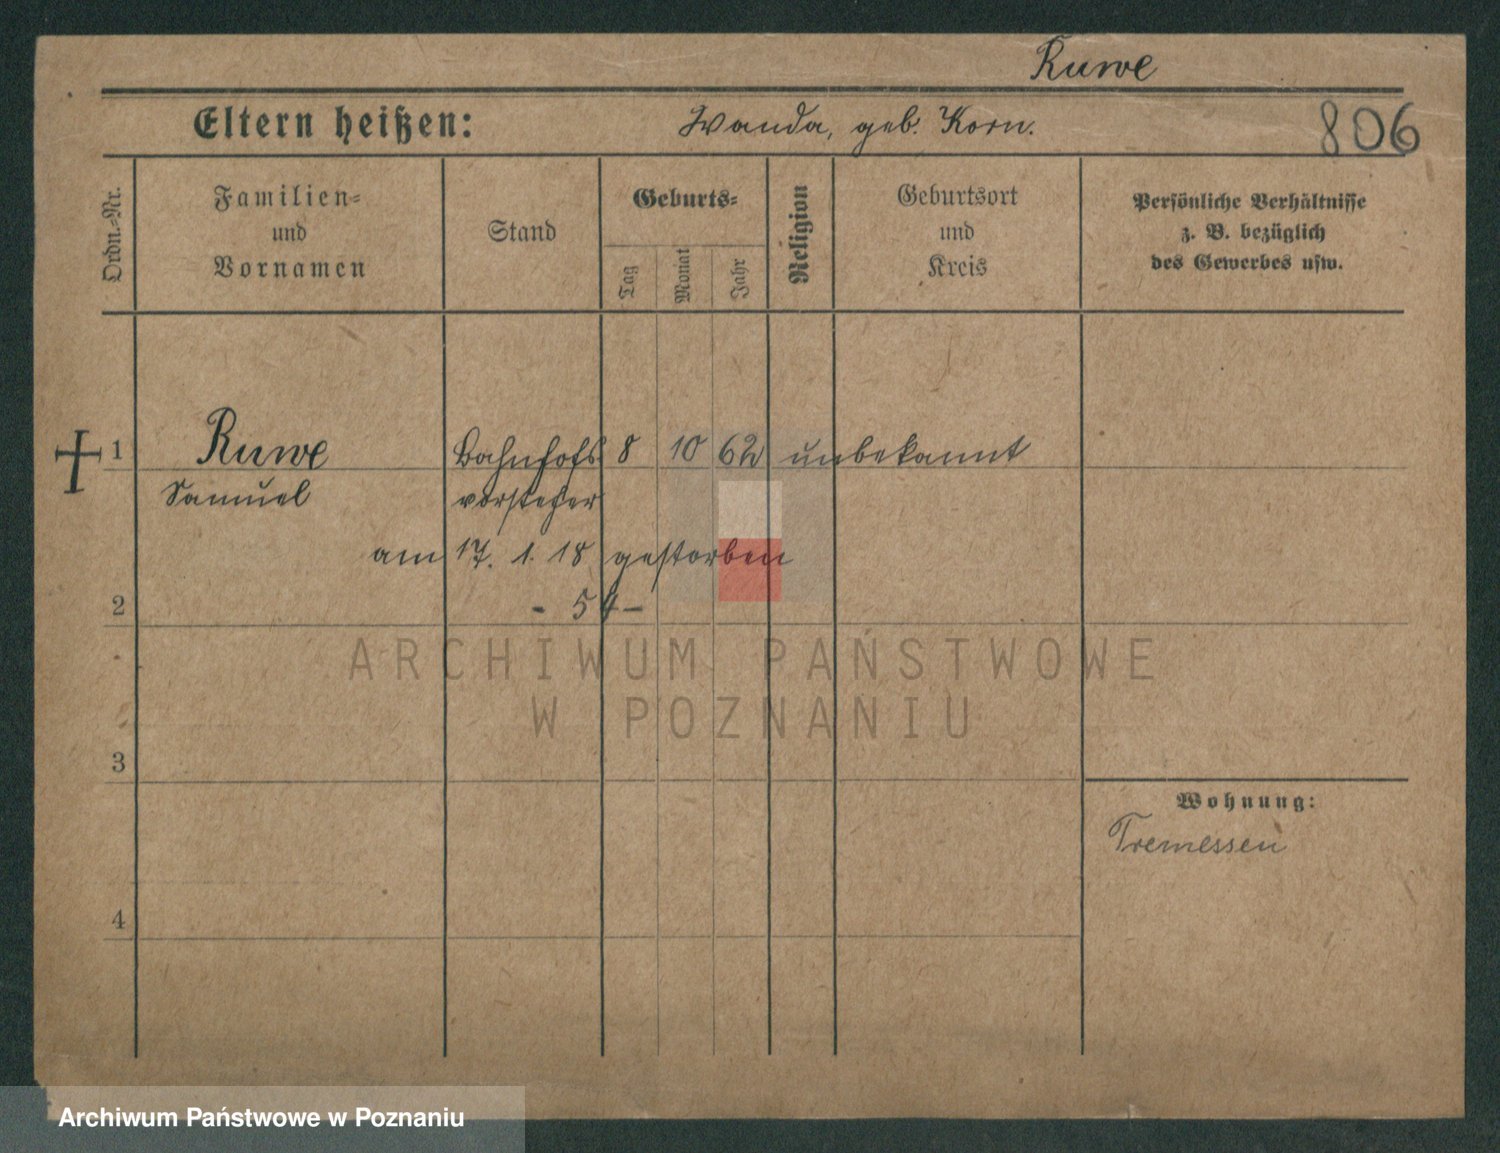 Ruwe
Eltern heißen: Wanda, geb. Korn. 806
Ordn.-Nr.
Familien-
und
Vornamen
Stand
Geburts-
Tag Monat Jahr
Religion
Geburtsort
und
Kreis
Persönliche Verhältnisse
z. B. bezüglich
des Gewerbes usw.
1 Ruwe Bahnhofs 8 10 62 unbekannt
Samuel vorsteher
am 17. 1. 18 gestorben
- 54 -
2
ARCHIWUM PAŃSTWOWE
W POZNANIU
3
Wohnung:
Tremessen
4
Archiwum Państwowe w Poznaniu